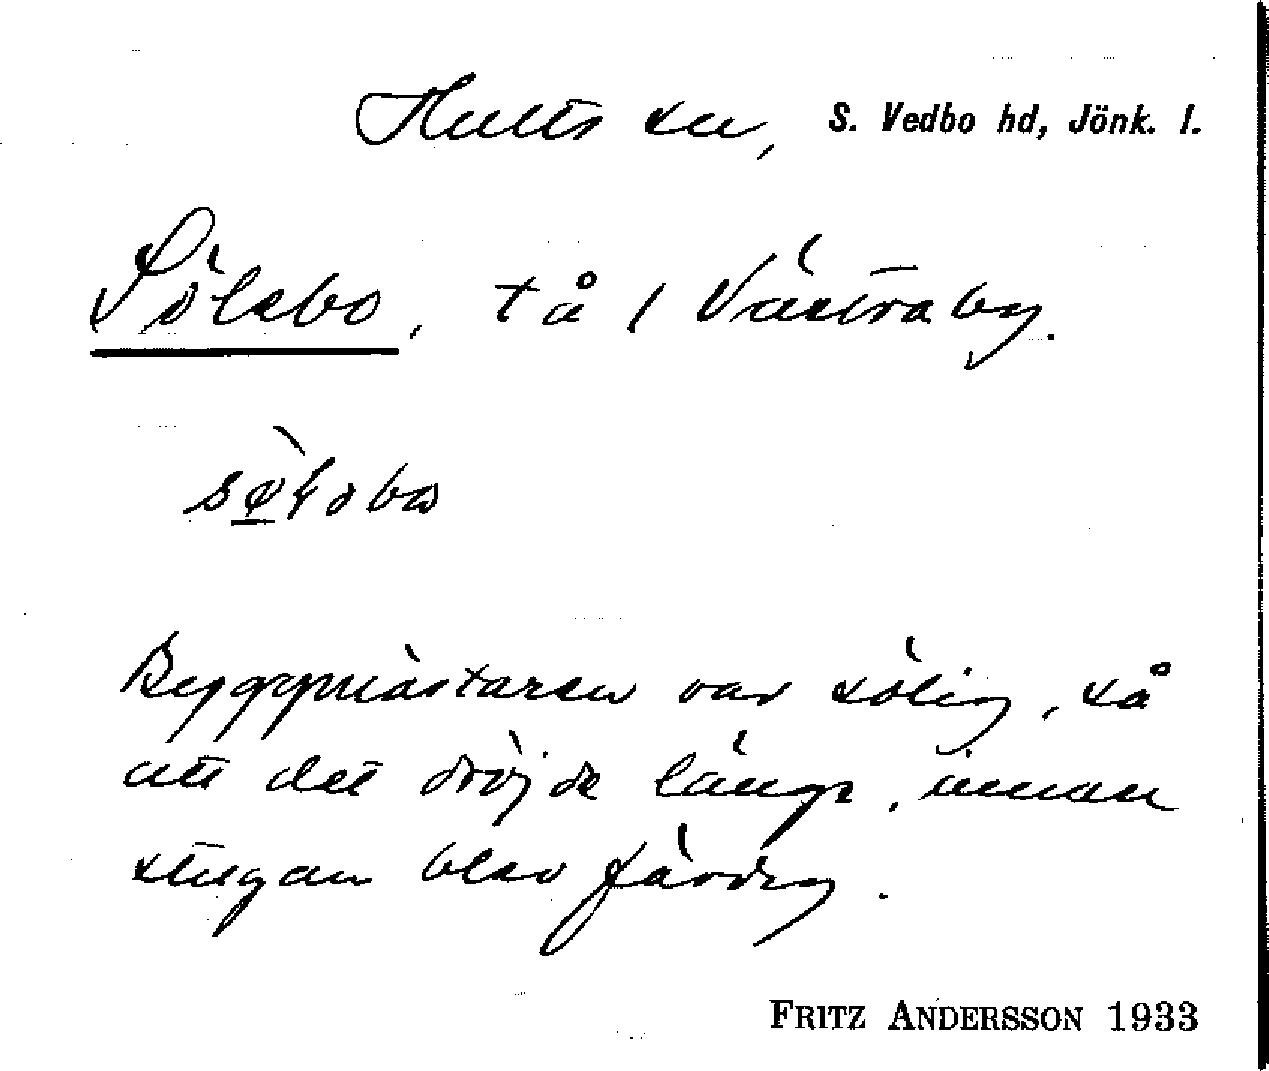 Hults sn, S. Vedbo hd, Jönk. l.
Sölebo, tå / Västraby.
Byggmästaren var sölig, så
att det dröjde länge, innan
stugan blev färdig.
FRITZ ANDERSSON 1933